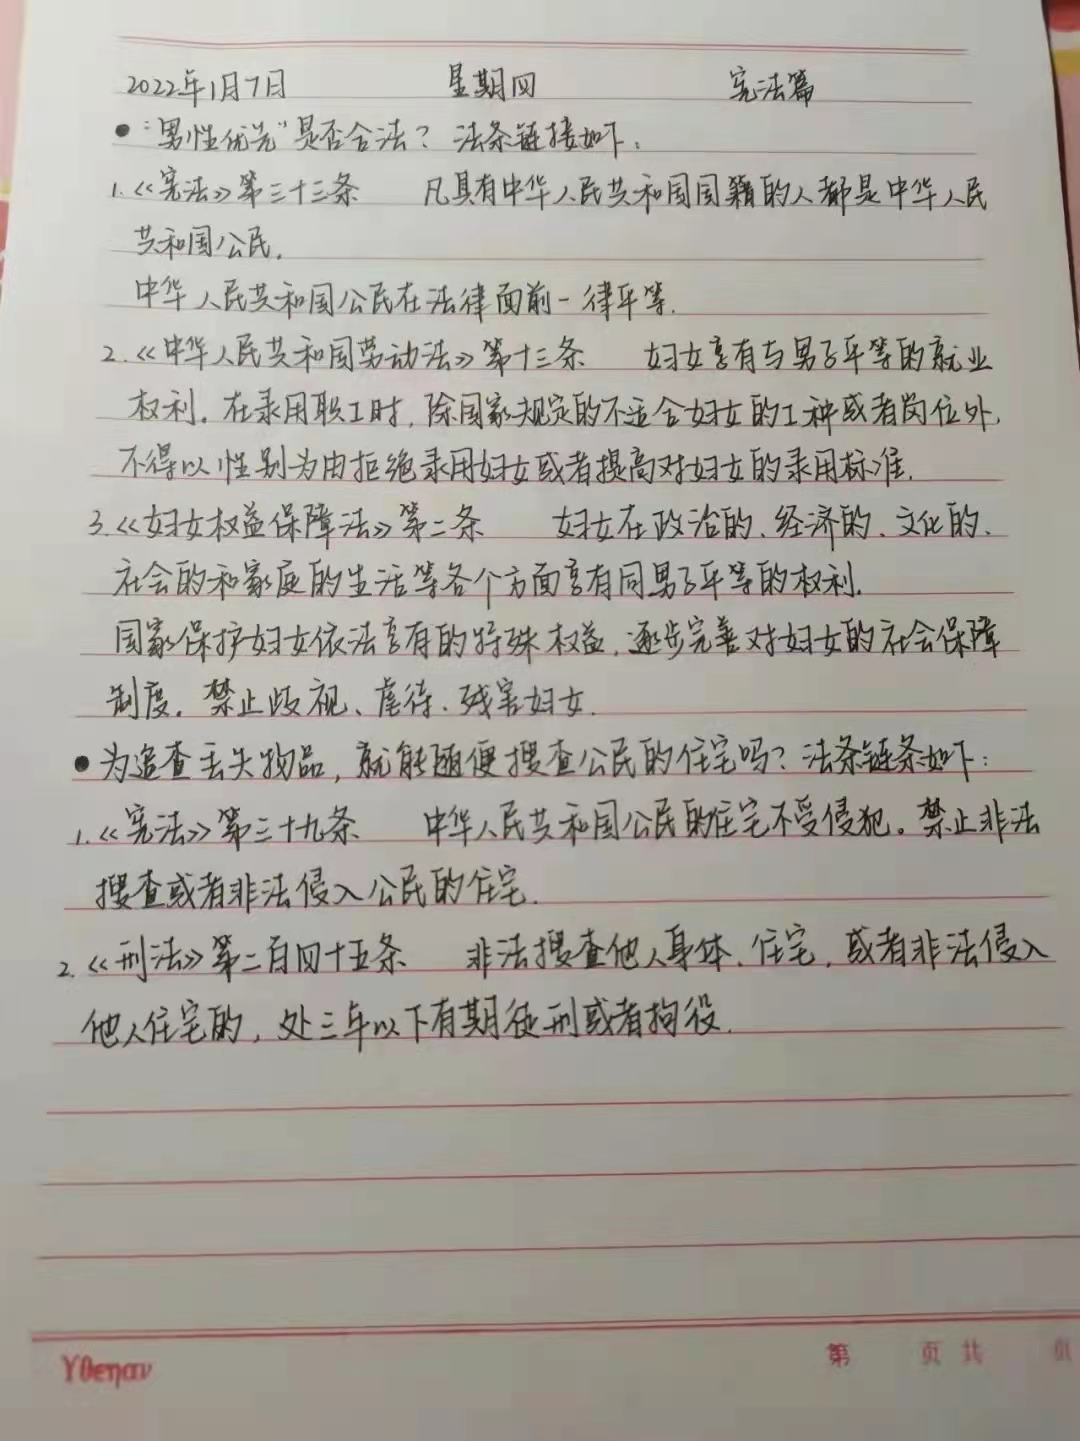 2022年1月7日 星期四 宪法篇
●“男性优先”是否合法？法条链接如下：
1.《宪法》第三十三条 凡具有中华人民共和国国籍的人都是中华人民
共和国公民.
中华人民共和国公民在法律面前一律平等.
2.《中华人民共和国劳动法》第十三条 妇女享有与男子平等的就业
权利.在录用职工时,除国家规定的不适合妇女的工种或者岗位外,
不得以性别为由拒绝录用妇女或者提高对妇女的录用标准.
3.《妇女权益保障法》第二条 妇女在政治的、经济的、文化的、
社会的和家庭的生活等各个方面享有同男子平等的权利.
国家保护妇女依法享有的特殊权益,逐步完善对妇女的社会保障
制度.禁止歧视、虐待、残害妇女.
●为追查丢失物品,就能随便搜查公民的住宅吗?法条链条如下:
1.《宪法》第三十九条 中华人民共和国公民的住宅不受侵犯。禁止非法
搜查或者非法侵入公民的住宅.
2.《刑法》第二百四十五条 非法搜查他人身体、住宅,或者非法侵入
他人住宅的,处三年以下有期徒刑或者拘役.
Yθεηαν 第 页 共 页